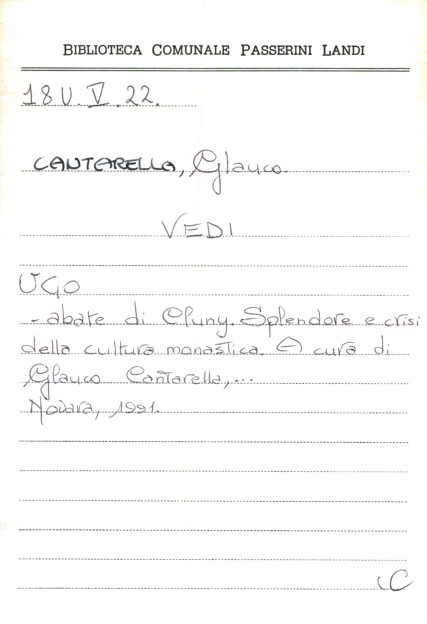 BIBLIOTECA COMUNALE PASSERINI LANDI
18 U. V. 22.
CANTARELLA, Glauco.
VEDI
UGO
- abate di Cluny. Splendore e crisi
della cultura monastica. A cura di
Glauco Cantarella,...
Novara, 1991.
C